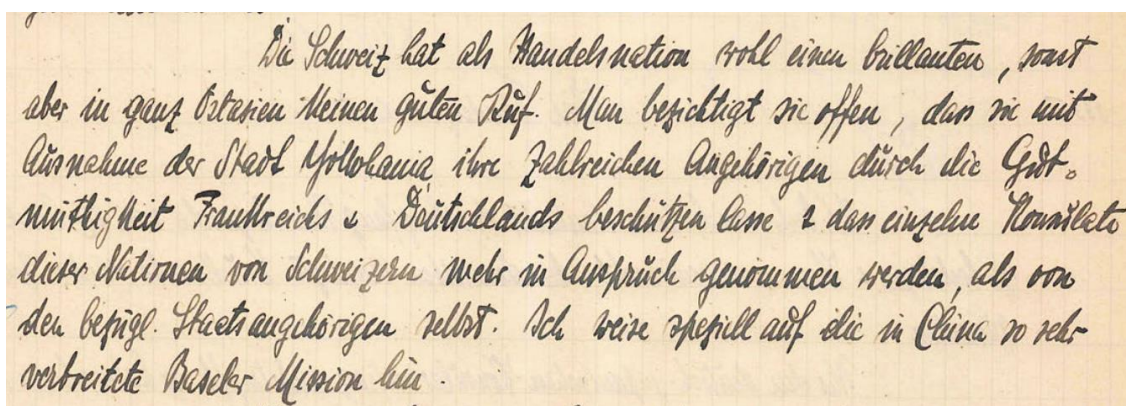 Die Schweiz hat als Handelsnation wohl einen brillanten, sonst
aber in ganz Ostasien keinen guten Ruf. Man bezichtigt sie offen, dass sie mit
Ausnahme der Stadt Yokohama, ihre zahlreichen Angehörigen durch die Gut-
muthigkeit Frankreichs & Deutschlands beschützen lasse & dass einzelne Konsulate
dieser Nationen von Schweizern mehr in Anspruch genommen werden, als von
den bezügl. Staatsangehörigen selbst. Ich weise speziell auf die in China so sehr
verbreitete Baseler Mission hin.